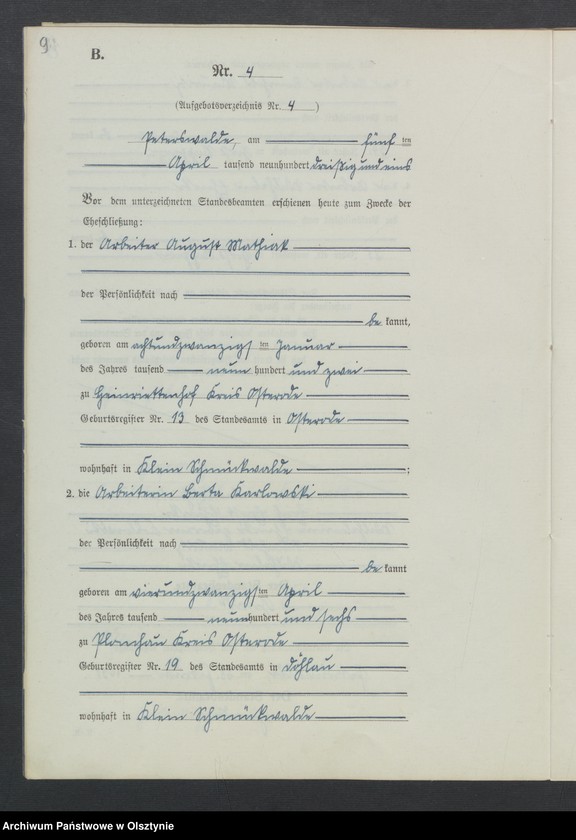 9
B.
Nr. 4
(Aufgebotsverzeichnis Nr. 4 )
Peterswalde, am fünf ten
April tausend neunhundert dreißig und eins
Vor dem unterzeichneten Standesbeamten erschienen heute zum Zwecke der
Eheschließung:
1. der Arbeiter August Mathiak
der Persönlichkeit nach
be kannt,
geboren am achtundzwanzigs ten Januar
des Jahres tausend neun hundert und zwei
zu Heinriettenhof Kreis Osterode
Geburtsregister Nr. 13 des Standesamts in Osterode
wohnhaft in Klein Schmückwalde ;
2. die Arbeiterin Berta Karlowski
der Persönlichkeit nach
be kannt
geboren am vierundzwanzigs ten April
des Jahres tausend neunhundert und sechs
zu Plonchau Kreis Osterode
Geburtsregister Nr. 19 des Standesamts in Döhlau
wohnhaft in Klein Schmückwalde
Archiwum Państwowe w Olsztynie
www.genealogiawarchiwach.pl